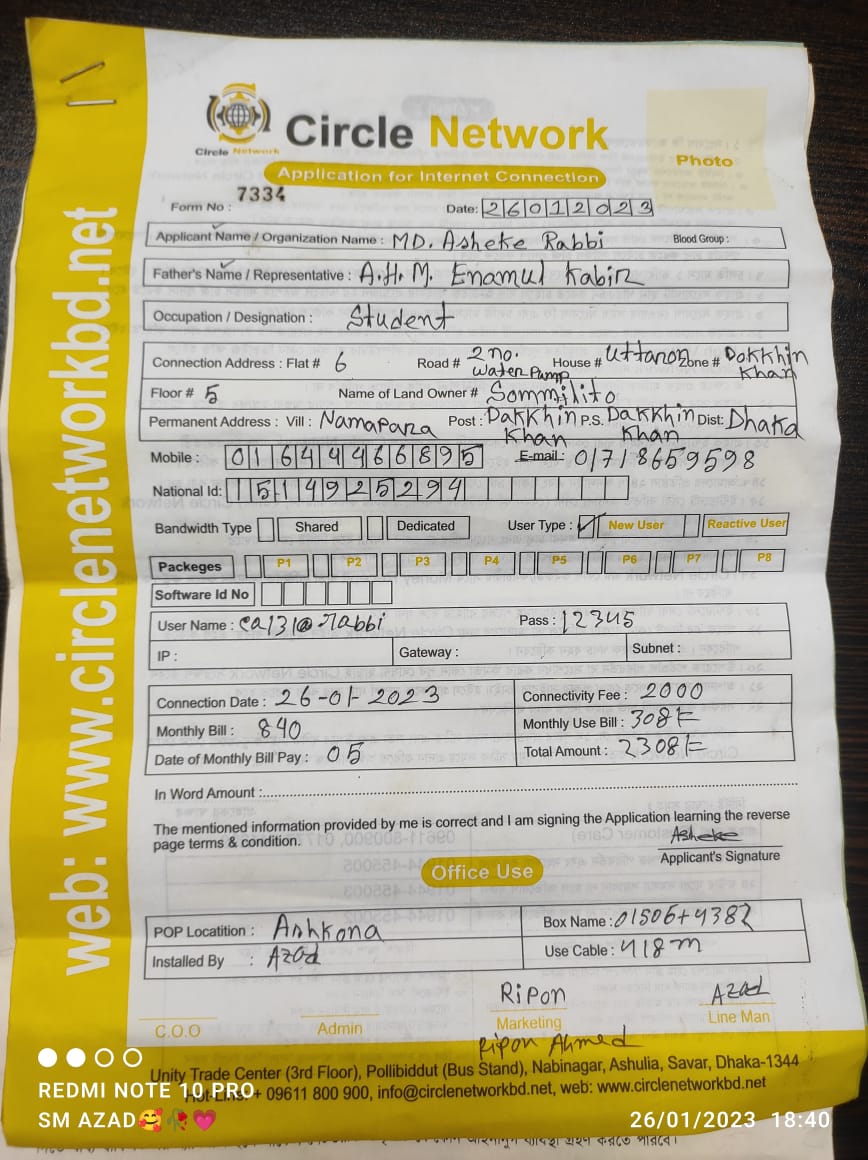 Circle Network
Circle Network
Photo
Application for Internet Connection
Form No : 7334
Date: 26012023
Applicant Name / Organization Name : MD. Asheke Rabbi Blood Group :
Father's Name / Representative : A.H.M. Enamul Kabir
Occupation / Designation : Student
Connection Address : Flat # 6 Road # 2 no. Water Pump House # Uttanon Zone # Dakkhin Khan
Floor # 5 Name of Land Owner # Sommilito
Permanent Address : Vill : Namapara Post : Dakkhin Khan P.S. Dakkhin Khan Dist: Dhaka
Mobile : 01644466895 E-mail : 01718659598
National Id: 1514925294
Bandwidth Type Shared Dedicated User Type : ✓ New User Reactive User
Packeges P1 P2 P3 P4 P5 P6 P7 P8
Software Id No
User Name : ca131@rabbi Pass : 12345
IP : Gateway : Subnet :
Connection Date : 26-01-2023 Connectivity Fee : 2000
Monthly Bill : 840 Monthly Use Bill : 308/=
Date of Monthly Bill Pay : 05 Total Amount : 2308/=
In Word Amount :
The mentioned information provided by me is correct and I am signing the Application learning the reverse
page terms & condition.
Asheke
Applicant's Signature
Office Use
POP Locatition : Ashkona Box Name : 01506+4382
Installed By : Azad Use Cable : 418m
Ripon Azad
C.O.O Admin Marketing Line Man
Ripon Ahmed
Unity Trade Center (3rd Floor), Pollibiddut (Bus Stand), Nabinagar, Ashulia, Savar, Dhaka-1344
Hot-Line: + 09611 800 900, info@circlenetworkbd.net, web: www.circlenetworkbd.net
web: www.circlenetworkbd.net
REDMI NOTE 10 PRO
SM AZAD🥰🥀💗
26/01/2023 18:40